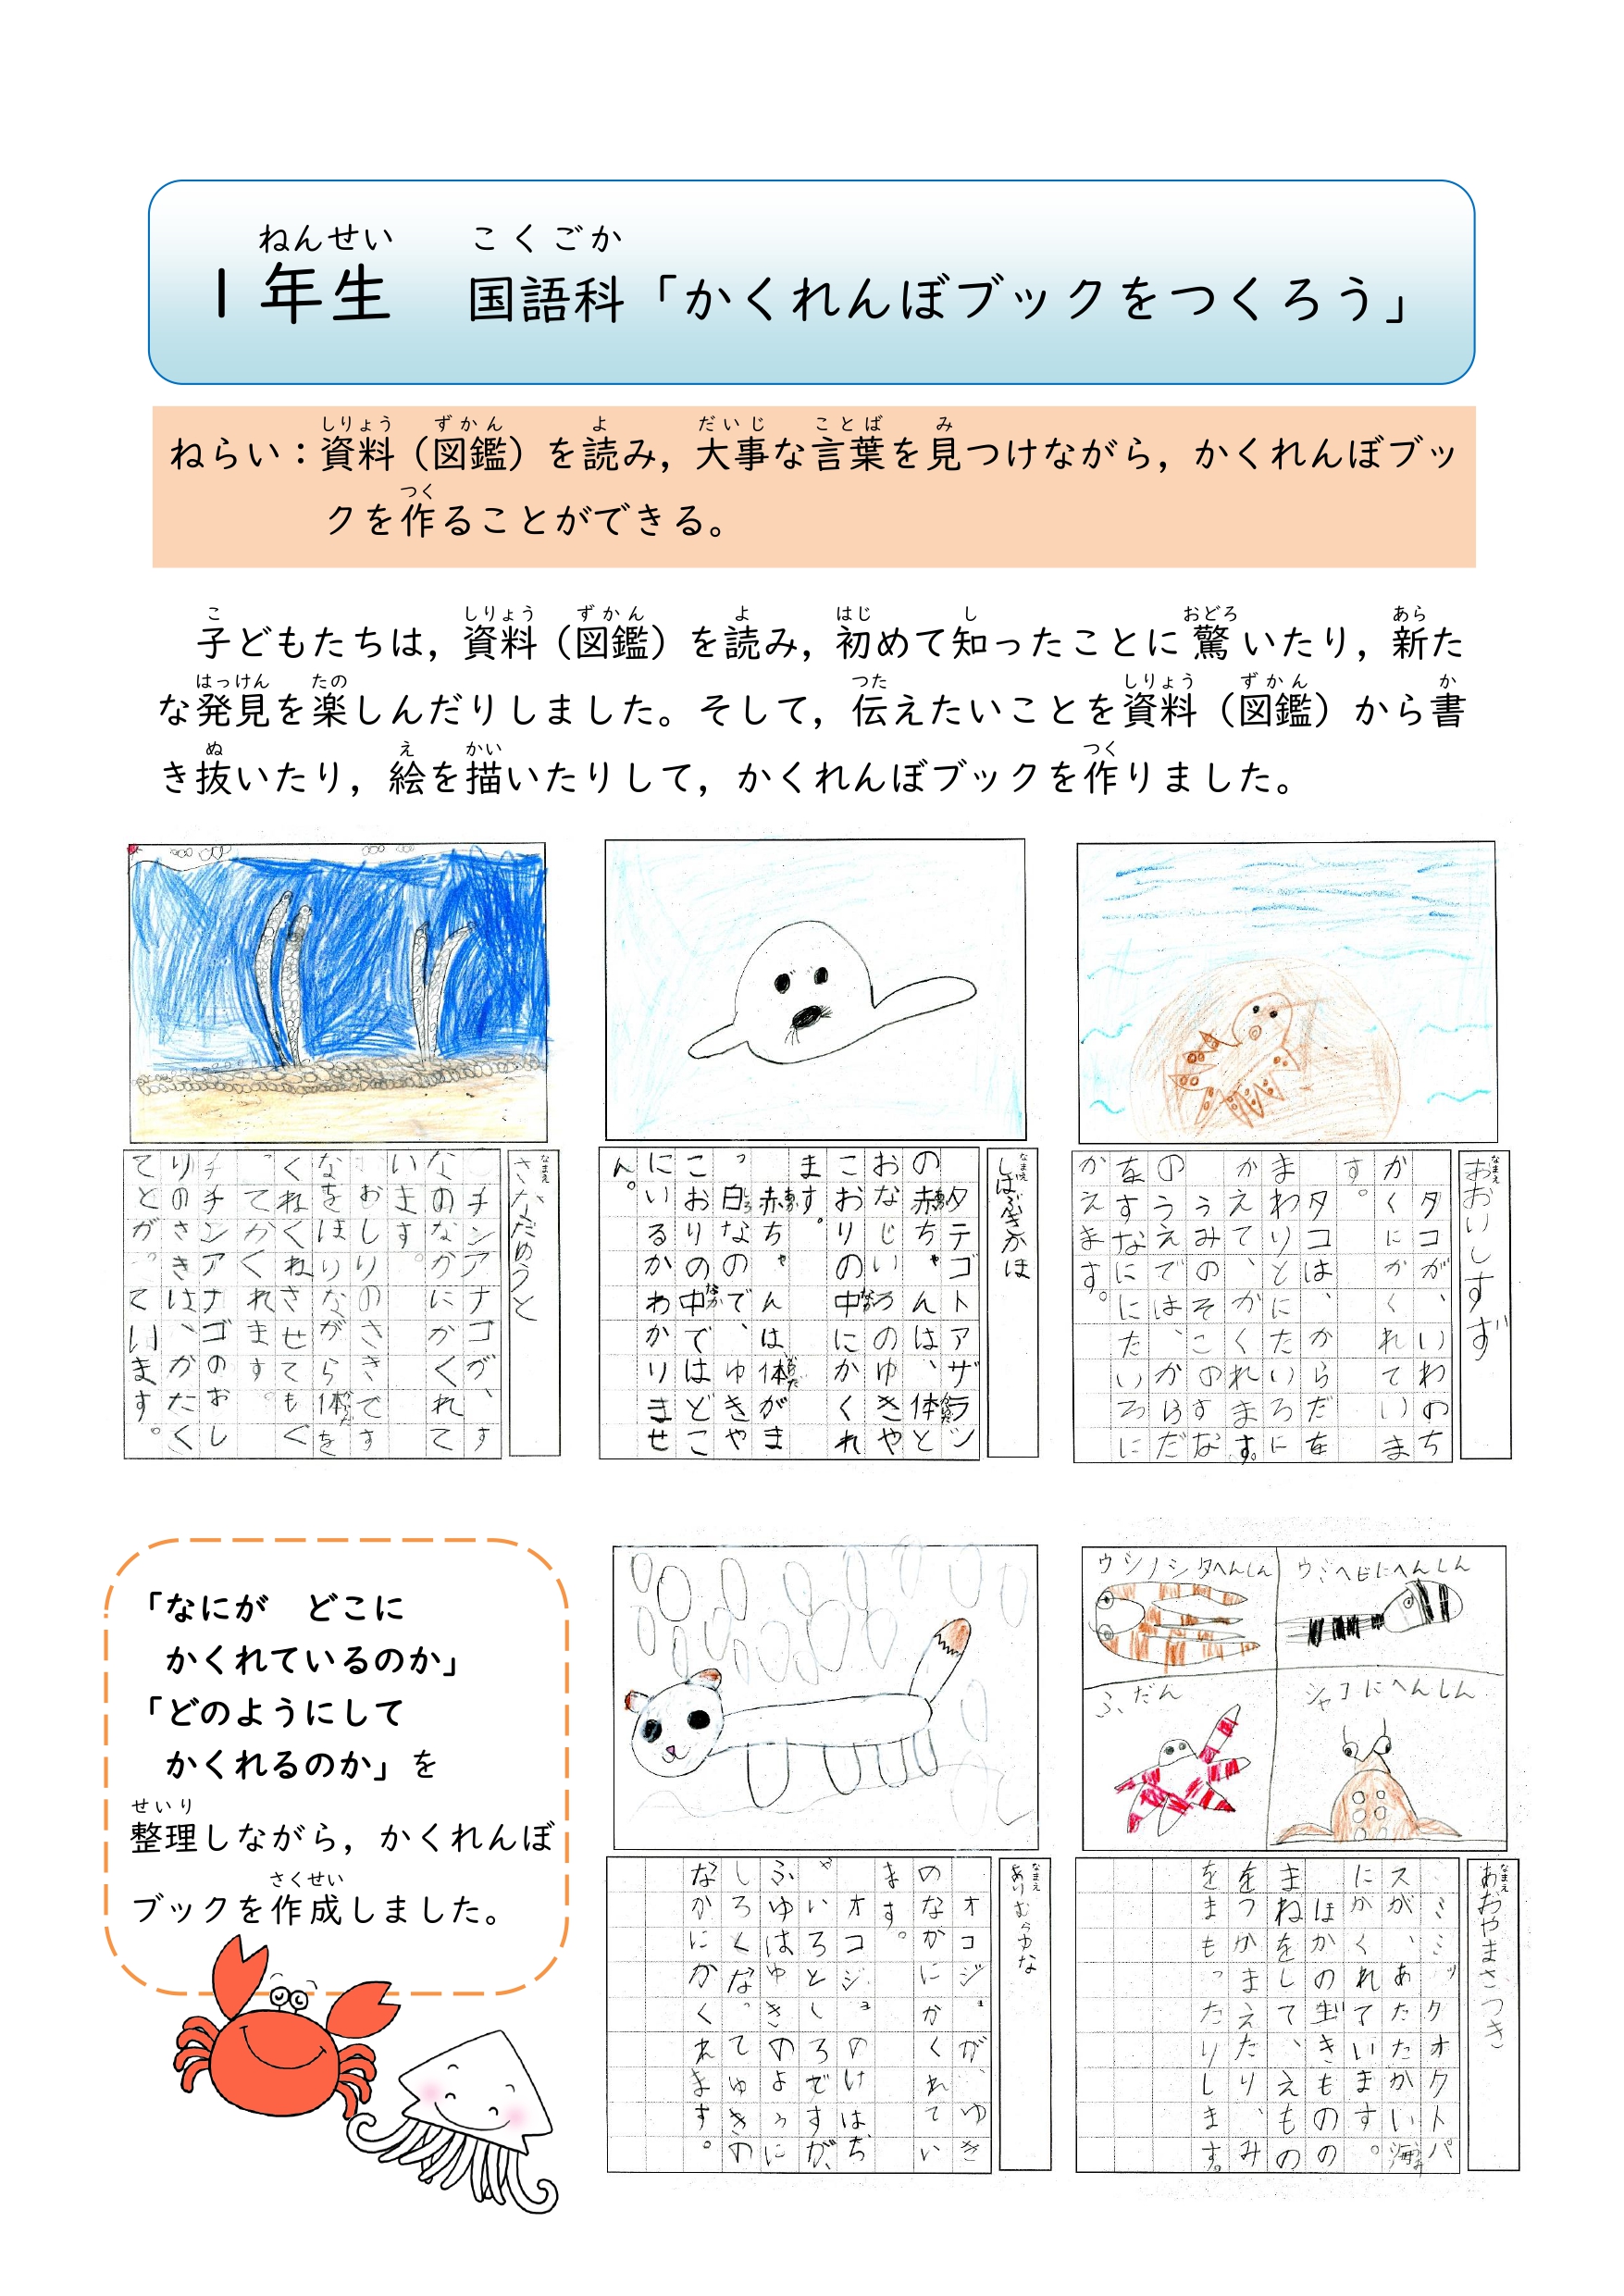 ねんせい　こくごか
1年生　国語科「かくれんぼブックをつくろう」
しりょう　ずかん　よ　だいじ　ことば　み
ねらい：資料（図鑑）を読み，大事な言葉を見つけながら，かくれんぼブッ
つく
クを作ることができる。
こ　しりょう　ずかん　よ　はじ　し　おどろ　あら
子どもたちは，資料（図鑑）を読み，初めて知ったことに驚いたり，新た
はっけん　たの　つた　しりょう　ずかん　か
な発見を楽しんだりしました。そして，伝えたいことを資料（図鑑）から書
ぬ　え　かい　つく
き抜いたり，絵を描いたりして，かくれんぼブックを作りました。
なまえ
おおいしすず
タコが、いわのち
かくにかくれていま
す。
タコは、からだを
まわりとにたいろに
かえて、かくれます。
うみのそこのすな
のうえでは、からだ
をすなににたいろに
かえます。
なまえ
しばぶきかほ
タテゴトアザラシ
の赤ちゃんは、体と
おなじいろのゆきや
こおりの中にかくれ
ます。
赤ちゃんは、体がま
っ白なので、ゆきや
こおりの中ではどこ
にいるかわかりませ
ん。
なまえ
さなだゆうと
チンアナゴが、す
なのなかにかくれて
います。
おしりのさきです
なをほりながら体を
くねくねさせてもぐ
ってかくれます。
チンアナゴのおし
りのさきは、かたく
てとがっています。
ウシノシタへんしん
ウミヘビにへんしん
ふだん
シャコにへんしん
なまえ
あおやまさつき
ミミックオクトパ
スが、あたたかい海
にかくれています。
ほかの生きものの
まねをして、えもの
をつかまえたり、み
をまもったりします。
なまえ
ありむらゆな
オコジョが、ゆき
のなかにかくれてい
ます。
オコジョのけはち
ゃいろとしろですが、
ふゆはゆきのように
しろくなってゆきの
なかにかくれます。
「なにが　どこに
かくれているのか」
「どのようにして
かくれるのか」を
せいり
整理しながら，かくれんぼ
さくせい
ブックを作成しました。